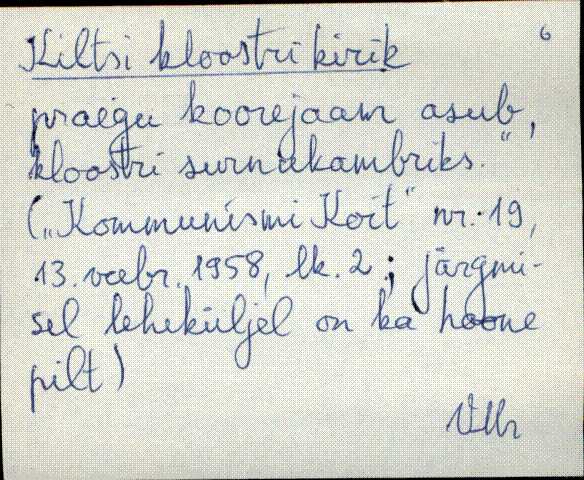 6
Kiltsi kloostrikirik
praegu koorejaam asub,
kloostri surnukambriks."
("Kommunismi Koit" nr. 19,
13. veebr. 1958, lk. 2; järgmi-
sel leheküljel on ka hoone
pilt)